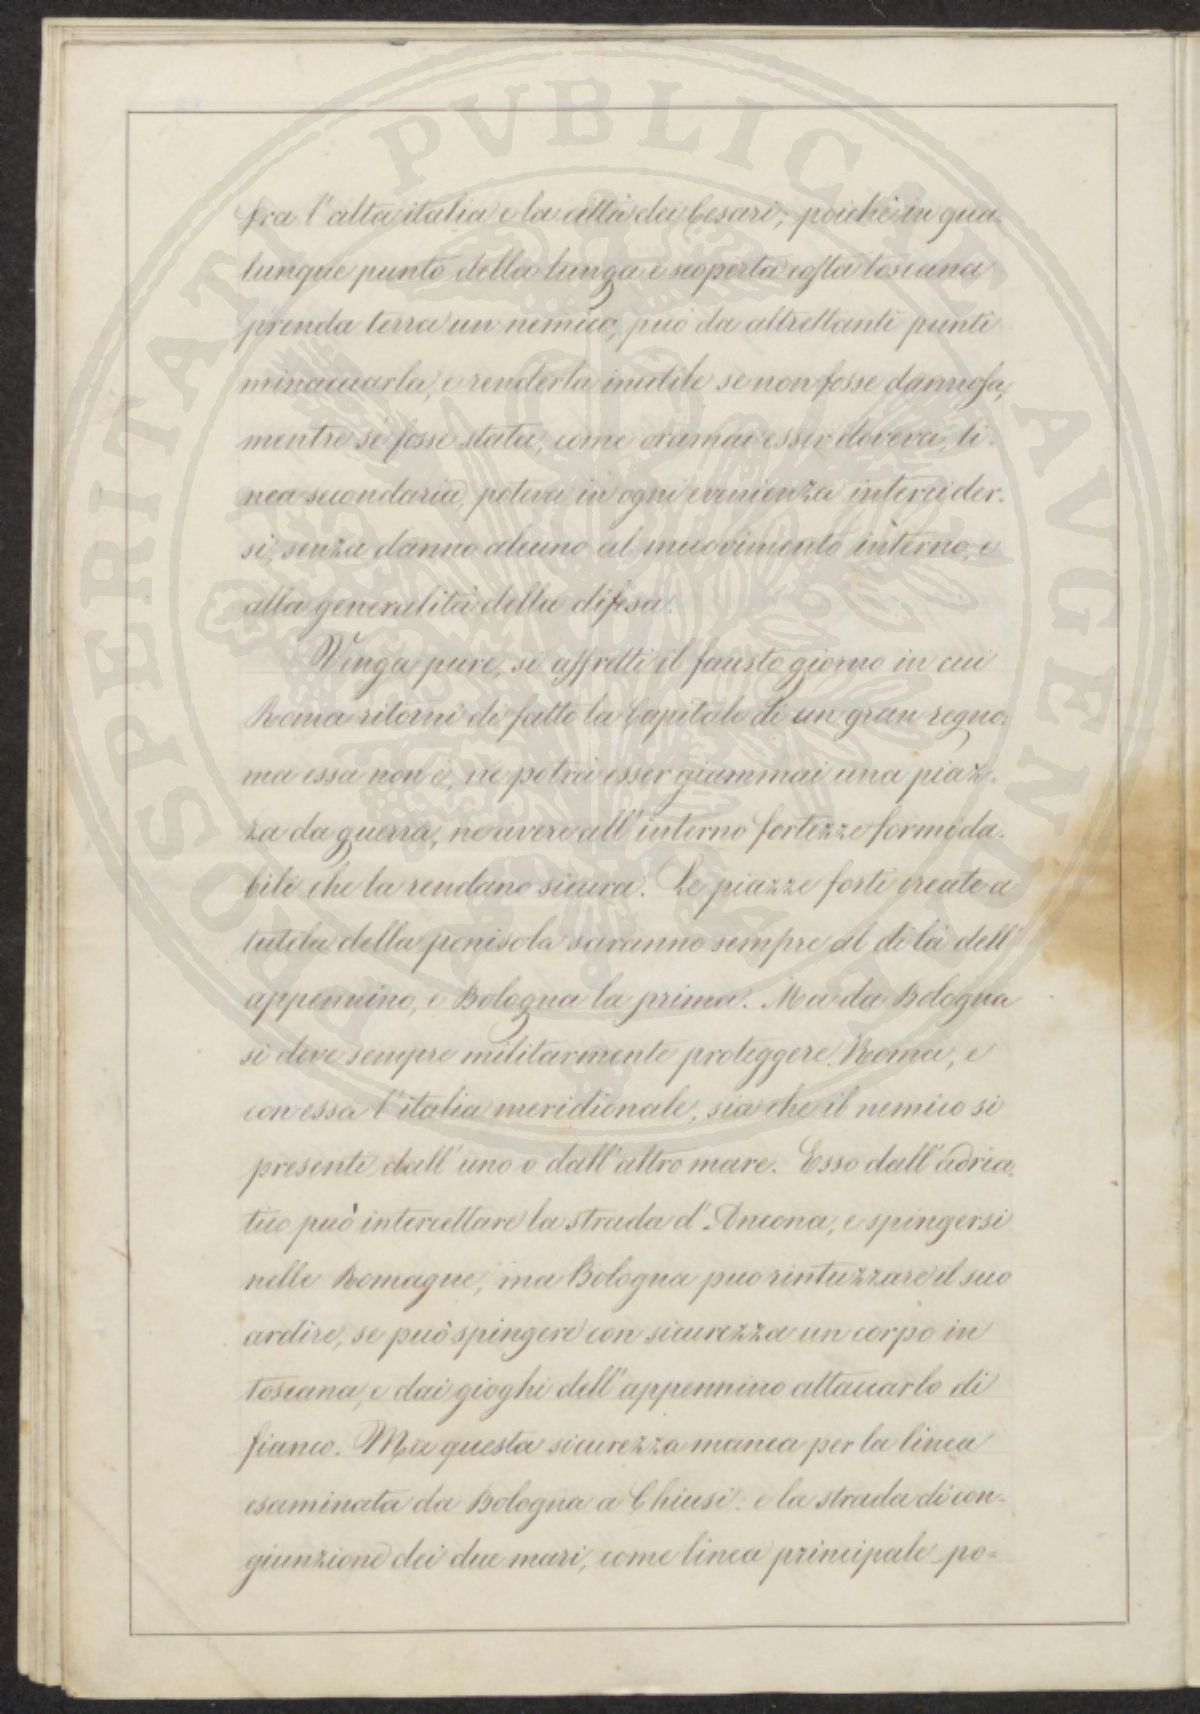 fra l'alta italia e la città dei Cesari; poichè in qua-
lunque punto della lunga e scoperta costa toscana
prenda terra un nemico, può da altrettanti punti
minacciarla, e renderla inutile se non fosse dannosa,
mentre se fosse stata, come oramai esser doveva, li-
nea secondaria, poteva in ogni evenienza intercider-
si, senza danno alcuno al muovimento interno, e
alla generalità della difesa.
Venga pure, si affretti il fausto giorno in cui
Roma ritorni di fatto la Capitale di un gran regno:
ma essa non è, ne potrà esser giammai una piaz-
za da guerra, ne avere all'interno fortezze formida-
bili che la rendano sicura. Le piazze forti create a
tutela della penisola saranno sempre al di là dell'
appennino, e Bologna la prima. Ma da Bologna
si deve sempre militarmente proteggere Roma, e
con essa l'italia meridionale, sia che il nemico si
presenti dall'uno o dall'altro mare. Esso dall'adria-
tico può intercettare la strada d'Ancona, e spingersi
nelle Romagne, ma Bologna puo rintuzzare il suo
ardire, se può spingere con sicurezza un corpo in
toscana, e dai gioghi dell'appennino attaccarlo di
fianco. Ma questa sicurezza manca per la linea
esaminata da Bologna a Chiusi: e la strada di con-
giunzione dei due mari, come linea principale po-
PUBLICAE AUGENDAE PROSPERITATI